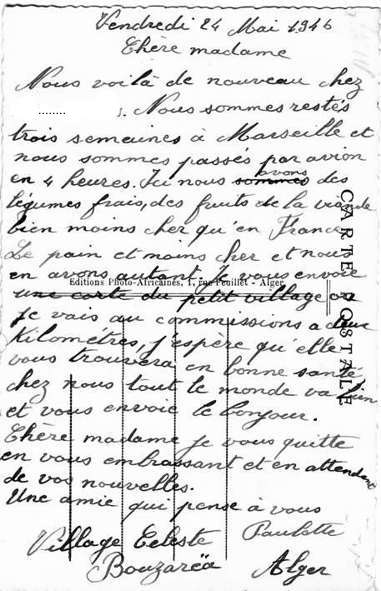 Vendredi 24 Mai 1946
Chère madame
Nous voilà de nouveau chez
........ . Nous sommes restés
trois semeines à Marseille et
nous sommes passés par avion
en 4 heures. Ici nous sommes avons des
légumes frais, des fruits de la viande
bien moins cher qu'en France
Le pain et moins cher et nous
en avons autant. Je vous envoie
Editions Photo-Africaines, 1, rue Feuillet - Alger
une carte du petit village ou
je vais au commissions a deux
Kilomètres, j'espère qu'elle
vous trouvera en bonne santé
chez nous tout le monde va bien
et vous envoie le bonjour.
Chère madame je vous quitte
en vous embrassant et en attendant
de vos nouvelles.
Une amie qui pense à vous
Paulette
Village Celeste
Bouzarëa Alger
CARTE POSTALE